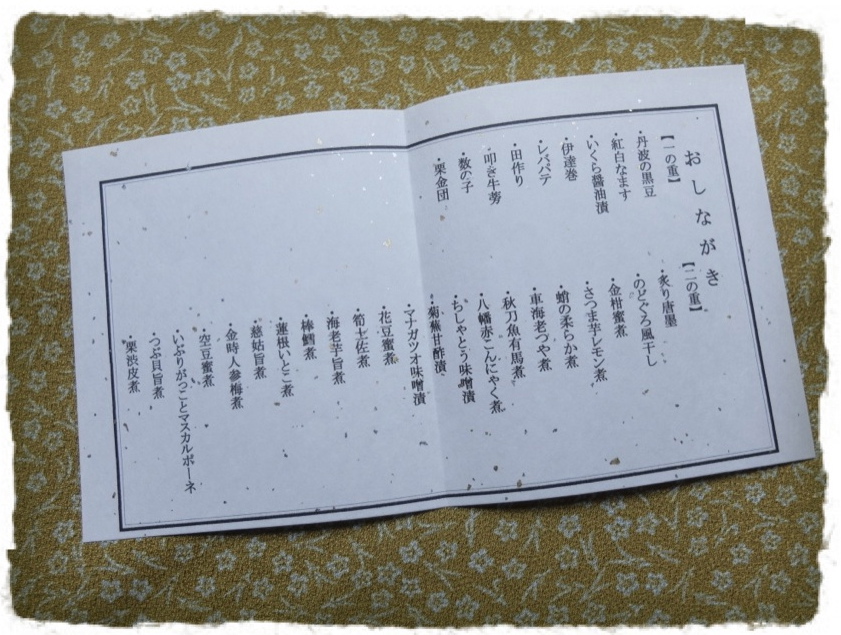 おしながき
【一の重】
・丹波の黒豆
・紅白なます
・いくら醤油漬
・伊達巻
・レバパテ
・田作り
・叩き牛蒡
・数の子
・栗金団
【二の重】
・炙り唐墨
・のどぐろ風干し
・金柑蜜煮
・さつま芋レモン煮
・蛸の柔らか煮
・車海老つや煮
・秋刀魚有馬煮
・八幡赤こんにゃく煮
・ちしゃとう味噌漬
・菊蕪甘酢漬
・マナガツオ味噌漬
・花豆蜜煮
・筍土佐煮
・海老芋旨煮
・棒鱈煮
・蓮根いとこ煮
・慈姑旨煮
・金時人参梅煮
・空豆蜜煮
・いぶりがっことマスカルポーネ
・つぶ貝旨煮
・栗渋皮煮